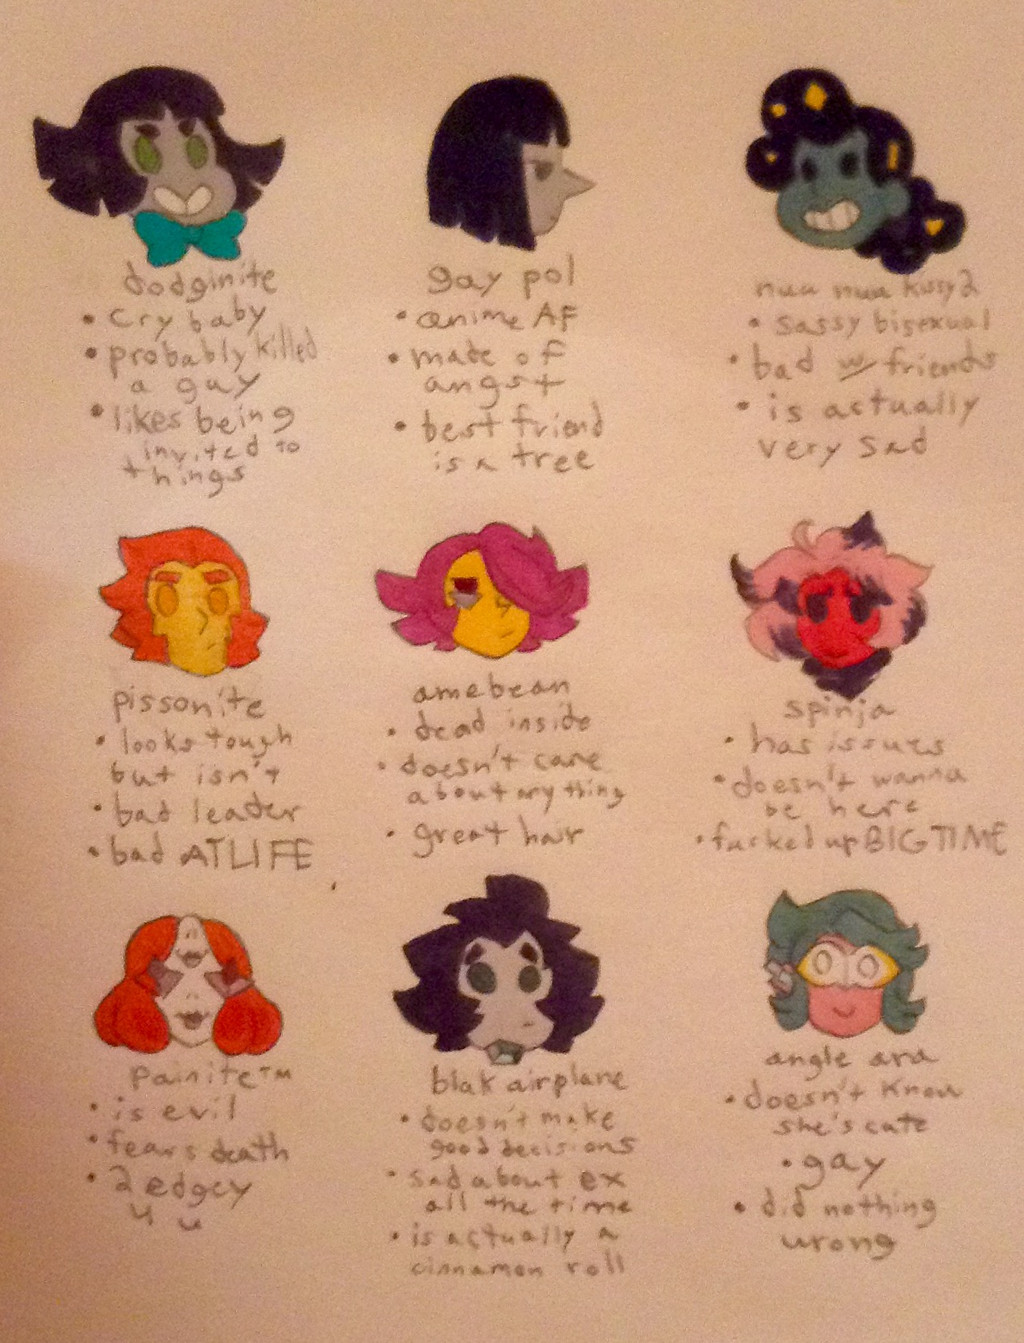 dodginite
• cry baby
• probably killed
a guy
• likes being
invited to
things
gay pol
• anime AF
• made of
angst
• best friend
is a tree
nuu nuu kussy2
• sassy bisexual
• bad w/ friends
• is actually
very sad
pissonite
• looks tough
but isn't
• bad leader
• bad AT LIFE
amebean
• dead inside
• doesn't care
about anything
• great hair
spinja
• has issues
• doesn't wanna
be here
• fucked up BIG TIME
painite™
• is evil
• fears death
• 2 edgey
4 u
blak airplane
• doesn't make
good decisions
• sad about ex
all the time
• is actually a
cinnamon roll
angle ara
• doesn't know
she's cute
• gay
• did nothing
wrong